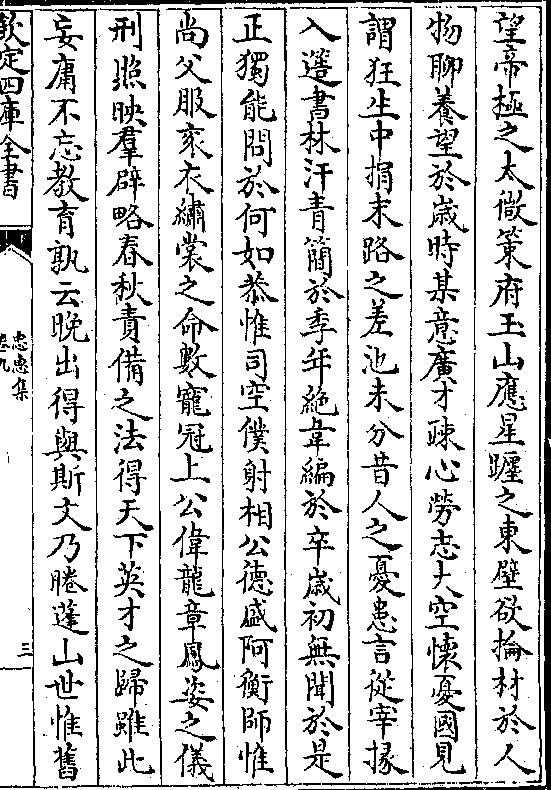 望帝極之太微策府玉山應星躔之東壁欲掄材於人
物聊養望於歲時某意廣才疎心勞志大空懷憂國見
謂狂生中捐末路之差池未分昔人之憂患言從宰掾
入選書林汗青簡於季年絶韋編於卒歲初無聞於是
正獨能問於何如恭惟司空僕射相公德盛阿衡師惟
尚父服衮衣繡裳之命數寵冠上公偉龍章鳳姿之儀
刑照映羣辟略春秋責備之法得天下英才之歸雖此
妄庸不忘教育孰云晚出得與斯文乃睠蓬山世惟舊
欽定四庫全書
忠惠集
卷九
三